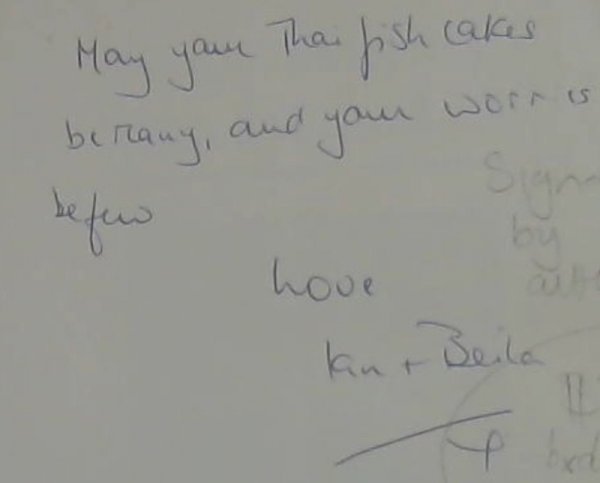 May your Thai fish cakes
be many, and your worries
be few
Love
Ian + Beila
Sign
by